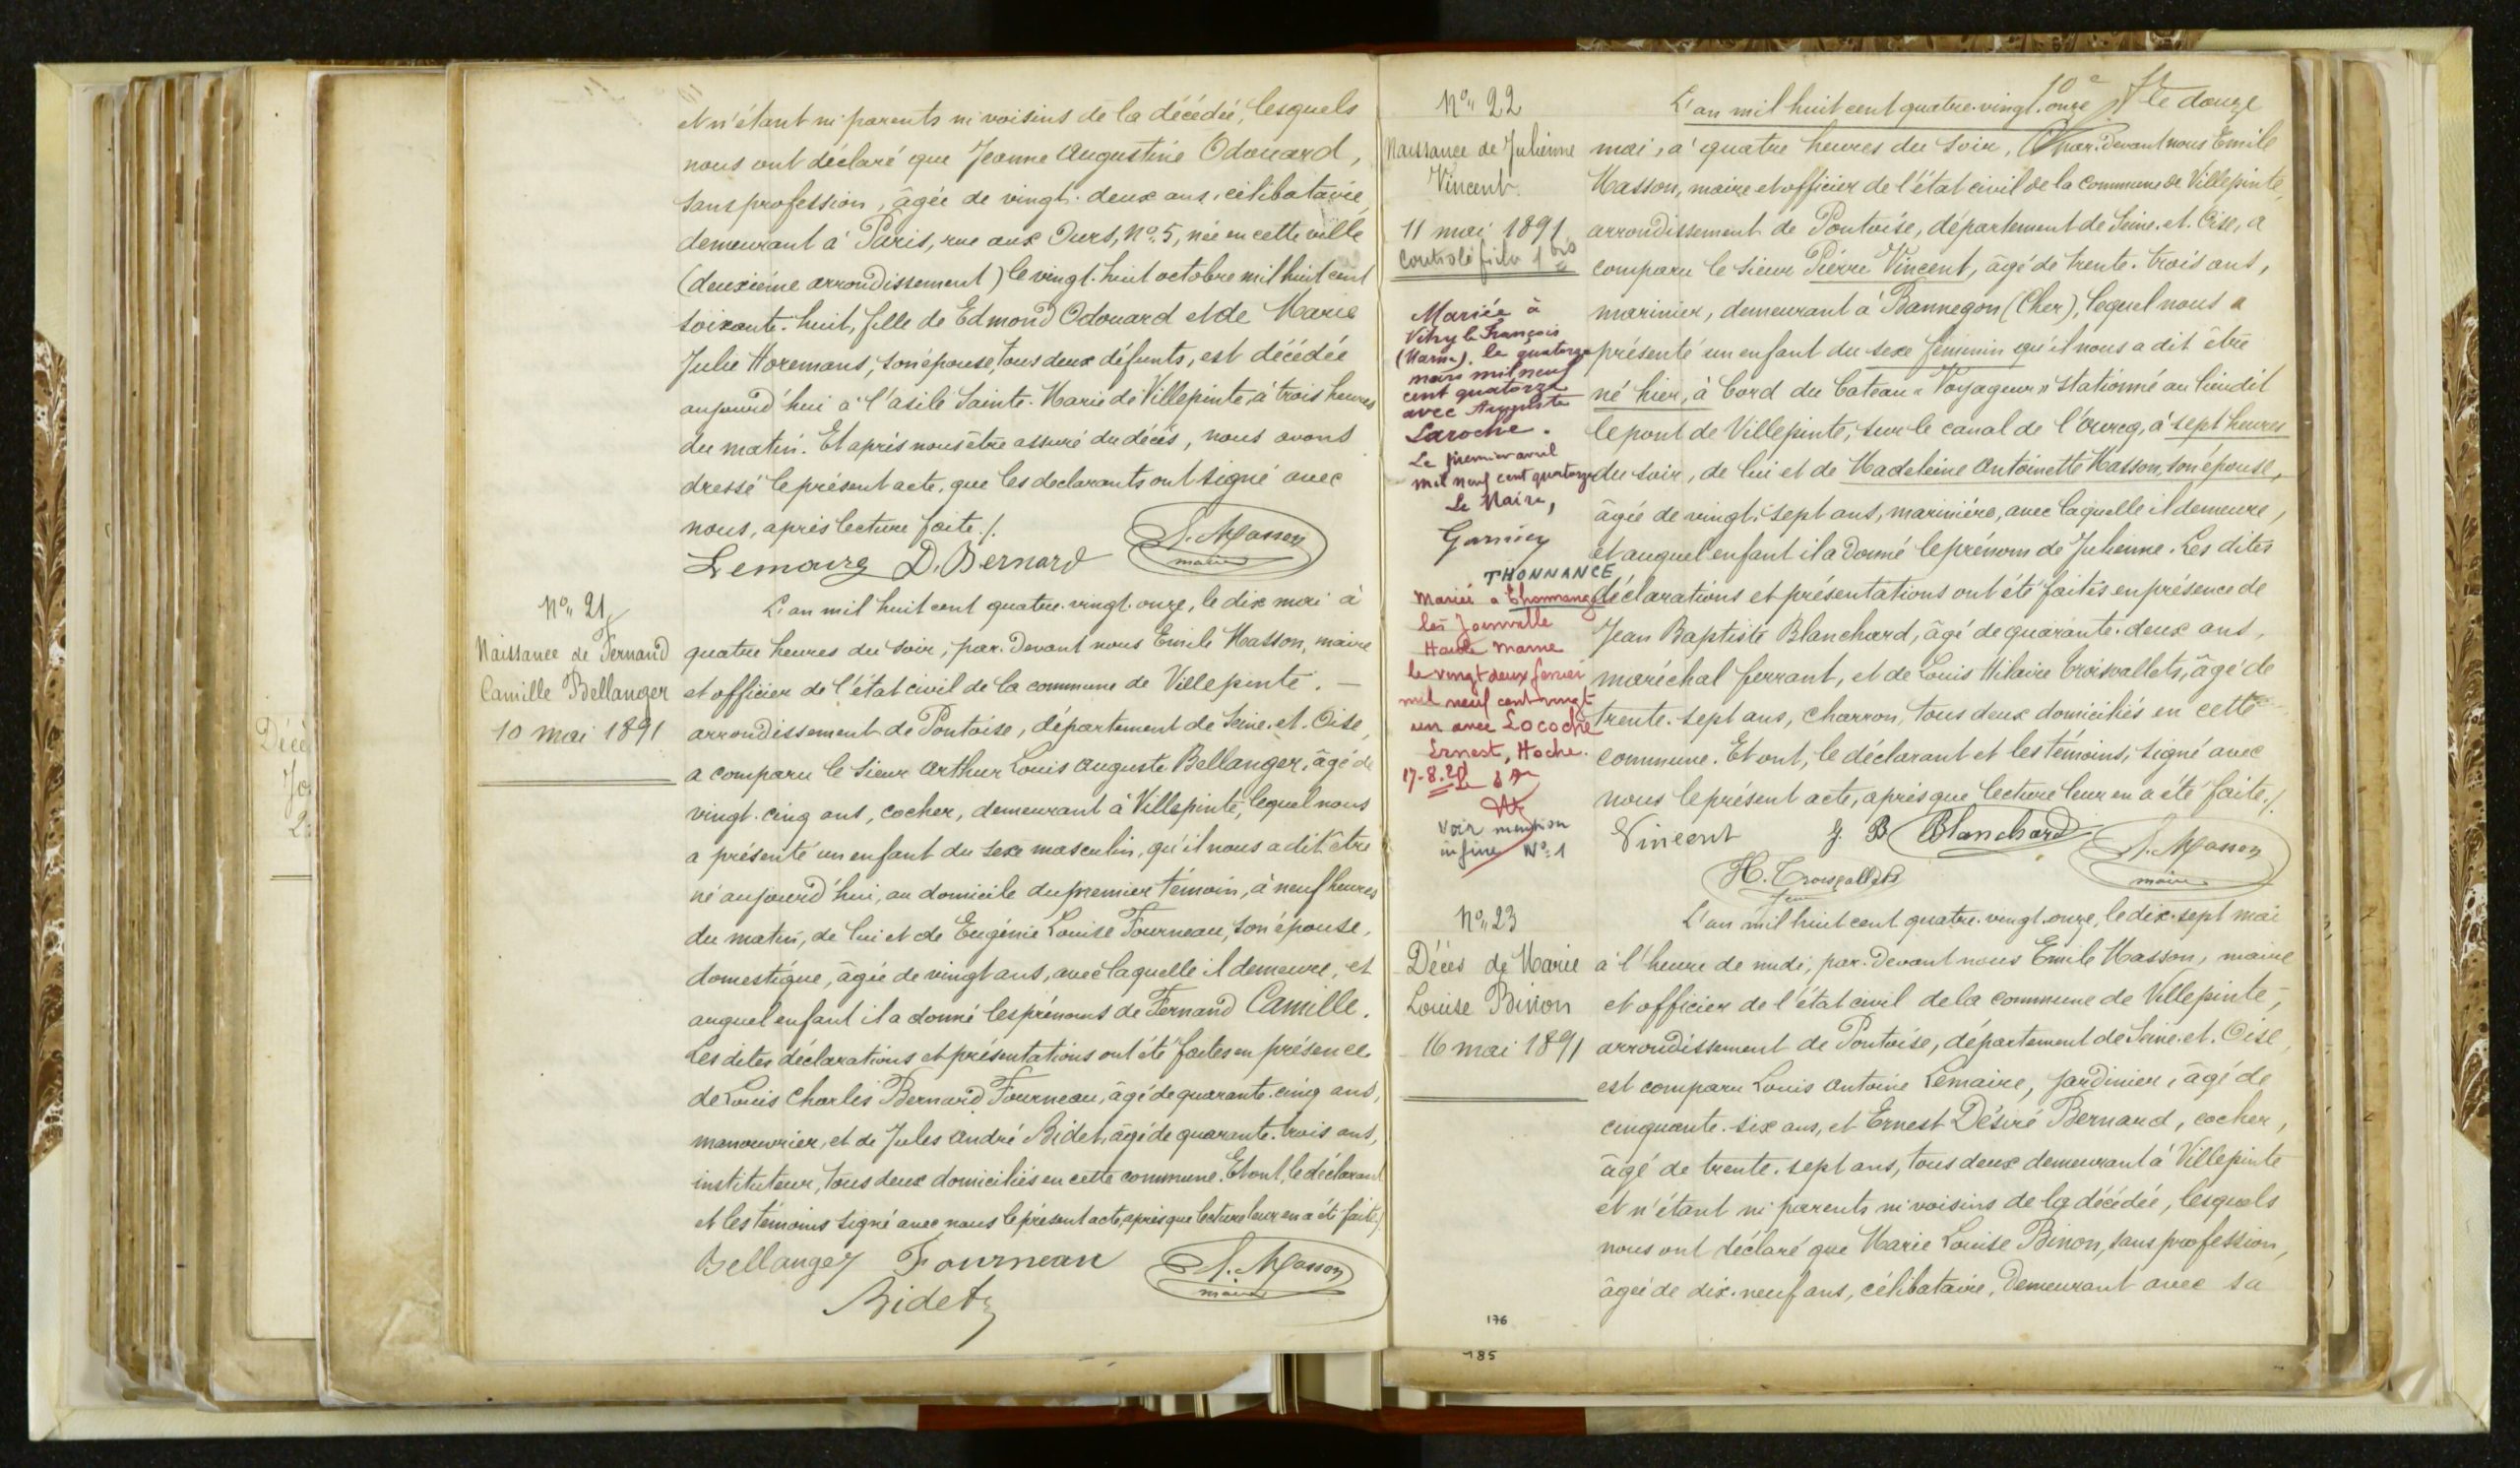 et n'étant ni parents ni voisins de la décédée, lesquels
nous ont déclaré que Jeanne Augustine Odouard,
sans profession, âgée de vingt-deux ans, célibataire,
demeurant à Paris, rue aux Ours, No 5, née en cette ville
(deuxième arrondissement) le vingt-huit octobre mil huit cent
soixante-huit, fille de Edmond Odouard et de Marie
Julie Horemans, son épouse, tous deux défunts, est décédée
aujourd'hui à l'asile Sainte-Marie de Villepinte, à trois heures
du matin. Et après nous être assuré du décès, nous avons
dressé le présent acte, que les déclarants ont signé avec
nous, après lecture faite ./.
D. Bernard
maire
No 21
Naissance de Fernand
Camille Bellanger
10 mai 1891
L'an mil huit cent quatre-vingt-onze, le dix mai à
quatre heures du soir, par-devant nous Emile Masson, maire
et officier de l'état civil de la commune de Villepinte. —
arrondissement de Pontoise, département de Seine-et-Oise,
a comparu le sieur Arthur Louis Auguste Bellanger, âgé de
vingt-cinq ans, cocher, demeurant à Villepinte, lequel nous
a présenté un enfant du sexe masculin, qu'il nous a dit être
né aujourd'hui, au domicile du premier témoin, à neuf heures
du matin, de lui et de Eugénie Louise Fourneau, son épouse,
domestique, âgée de vingt ans, avec laquelle il demeure, et
auquel enfant il a donné les prénoms de Fernand Camille.
Les dites déclarations et présentations ont été faites en présence
de Louis Charles Bernard Fourneau, âgé de quarante-cinq ans,
manouvrier, et de Jules André Bidet, âgé de quarante-trois ans,
instituteur, tous deux domiciliés en cette commune. Et ont, le déclarant
et les témoins signé avec nous le présent acte, après que lecture leur en a été faite./.
Bellanger Fourneau
maire
Bidet
No 22
Naissance de Julienne
Vincent.
11 mai 1891
bis
Mariée à
Vitry le François
(Marne), le quatorze
mars mil neuf
cent quatorze
avec Auguste
Laroche.
Le premier avril
mil neuf cent quatorze
Le Maire,
THONNANCE
Mariée a Thonnance
les Joinville
Haute Marne
le vingt deux fevrier
mil neuf cent vingt
un avec Locoche
Ernest, Hoche.
Voir mention
in fine No 1
10e
L'an mil huit cent quatre-vingt-onze, le douze
mai, à quatre heures du soir, par-devant nous Emile
Masson, maire et officier de l'état civil de la commune de Villepinte,
arrondissement de Pontoise, département de Seine-et-Oise, a
comparu le sieur Pierre Vincent, âgé de trente-trois ans,
marinier, demeurant à Bannegon (Cher), lequel nous a
présenté un enfant du sexe féminin qu'il nous a dit être
né hier, à bord du bateau « Voyageur » stationné au lieudit
le pont de Villepinte, sur le canal de l'Ourcq, à sept heures
du soir, de lui et de Madeleine Antoinette Masson, son épouse,
âgée de vingt-sept ans, marinière, avec laquelle il demeure,
et auquel enfant il a donné le prénom de Julienne. Les dites
déclarations et présentations ont été faites en présence de
Jean Baptiste Blanchard, âgé de quarante-deux ans,
maréchal ferrant, et de Louis Hilaire Troisvallets, âgé de
trente-sept ans, charron, tous deux domiciliés en cette
commune. Et ont, le déclarant et les témoins, signé avec
nous le présent acte, après que lecture leur en a été faite./.
Vincent J. B Blanchard
maire
No 23
Décès de Marie
Louise Binon
16 mai 1891
L'an mil huit cent quatre-vingt-onze, le dix-sept mai
à l'heure de midi, par-devant nous Emile Masson, maire
et officier de l'état civil de la commune de Villepinte,
arrondissement de Pontoise, département de Seine-et-Oise,
est comparu Louis Antoine Lemaire, jardinier, âgé de
cinquante-six ans, et Ernest Désiré Bernard, cocher,
âgé de trente-sept ans, tous deux demeurant à Villepinte
et n'étant ni parents ni voisins de la décédée, lesquels
nous ont déclaré que Marie Louise Binon, sans profession,
âgée de dix-neuf ans, célibataire, demeurant avec sa
176
185